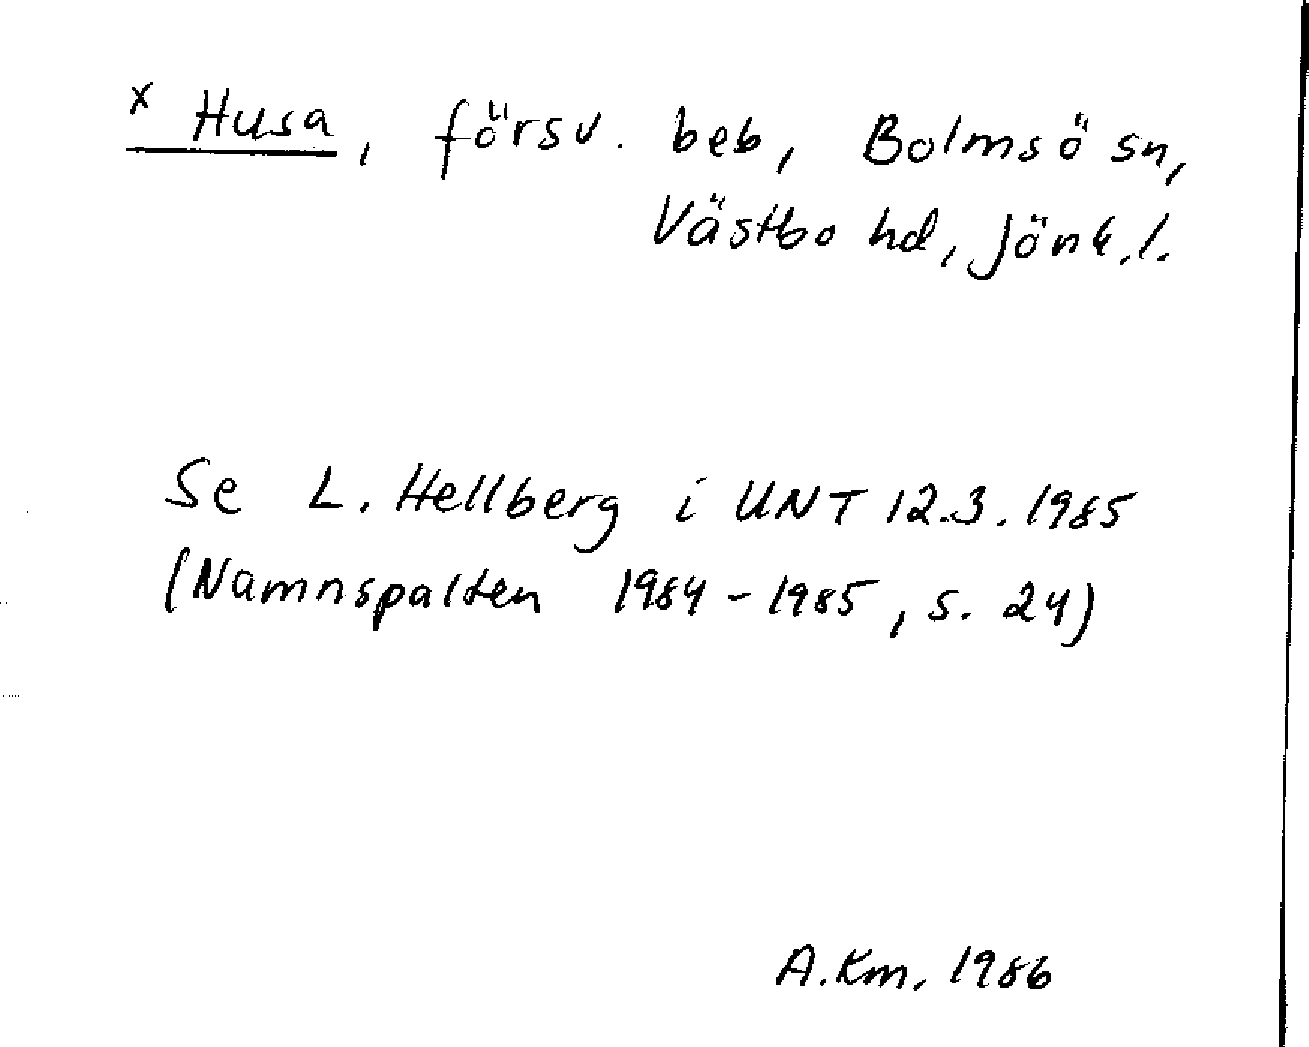 x Husa, försv. beb, Bolmsö sn,
Västbo hd, Jönk.l.
Se L. Hellberg i UNT 12.3.1985
(Namnspalten 1984-1985, s. 24)
A.Km. 1986